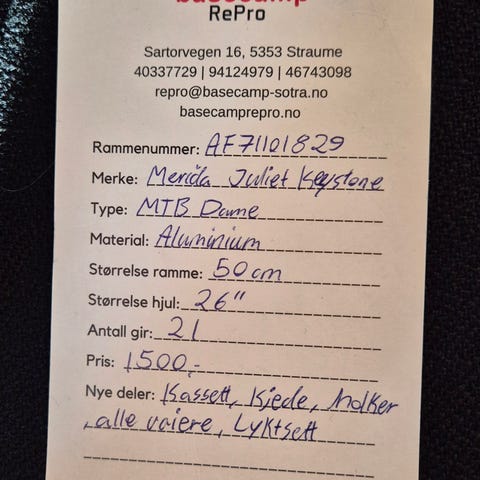 basecamp
RePro
Sartorvegen 16, 5353 Straume
40337729 | 94124979 | 46743098
repro@basecamp-sotra.no
basecamprepro.no
Rammenummer: AF71101829
Merke: Merida Juliet Keystone
Type: MTB Dame
Material: Aluminium
Størrelse ramme: 50 cm
Størrelse hjul: 26"
Antall gir: 21
Pris: 1500,-
Nye deler: Kassett, Kjede, holker
, alle vaiere, Lyktsett